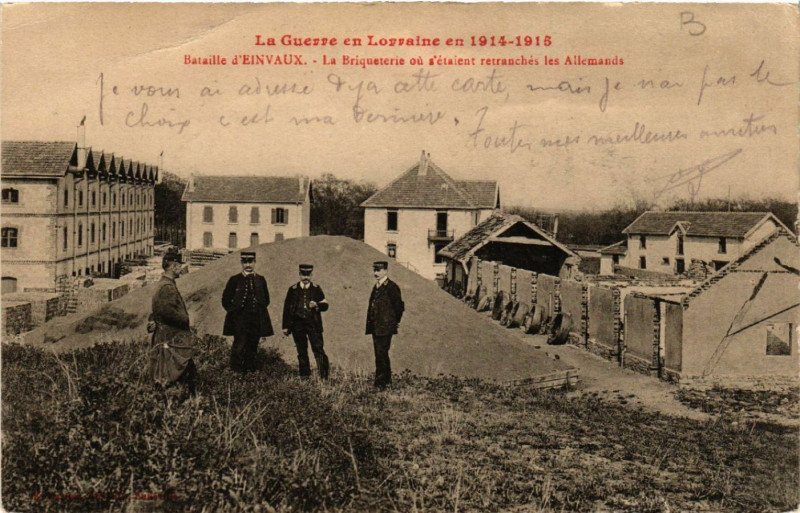 B
La Guerre en Lorraine en 1914-1915
Bataille d'EINVAUX. - La Briqueterie où s'étaient retranchés les Allemands
je vous ai adressé deja cette carte, mais je n'ai pas le
choix c'est ma dernière.
Toutes mes meilleures amities